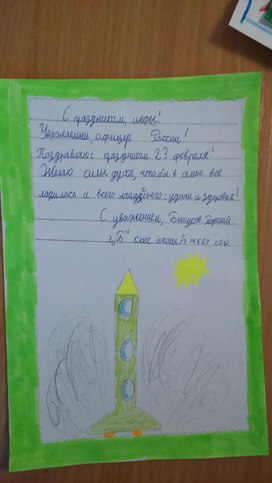 С праздником, шефы!
Уважаемый, офицер России!
Поздравляю с праздником 23 февраля!
Желаю силы духа, чтобы в семье все
ладилось и всего наилучшего: удачи и здоровья!
С уважением, Георгий.
"Б" класс школы